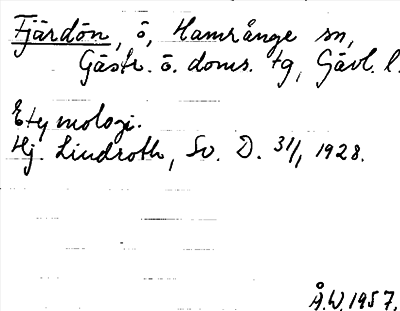 Fjärdön, ö, Hamrånge sn,
Gästr. ö. doms. tg, Gävl. l.
Etymologi.
Hj. Lindroth, Sv. D. 31/1 1928.
Å.W.1957.